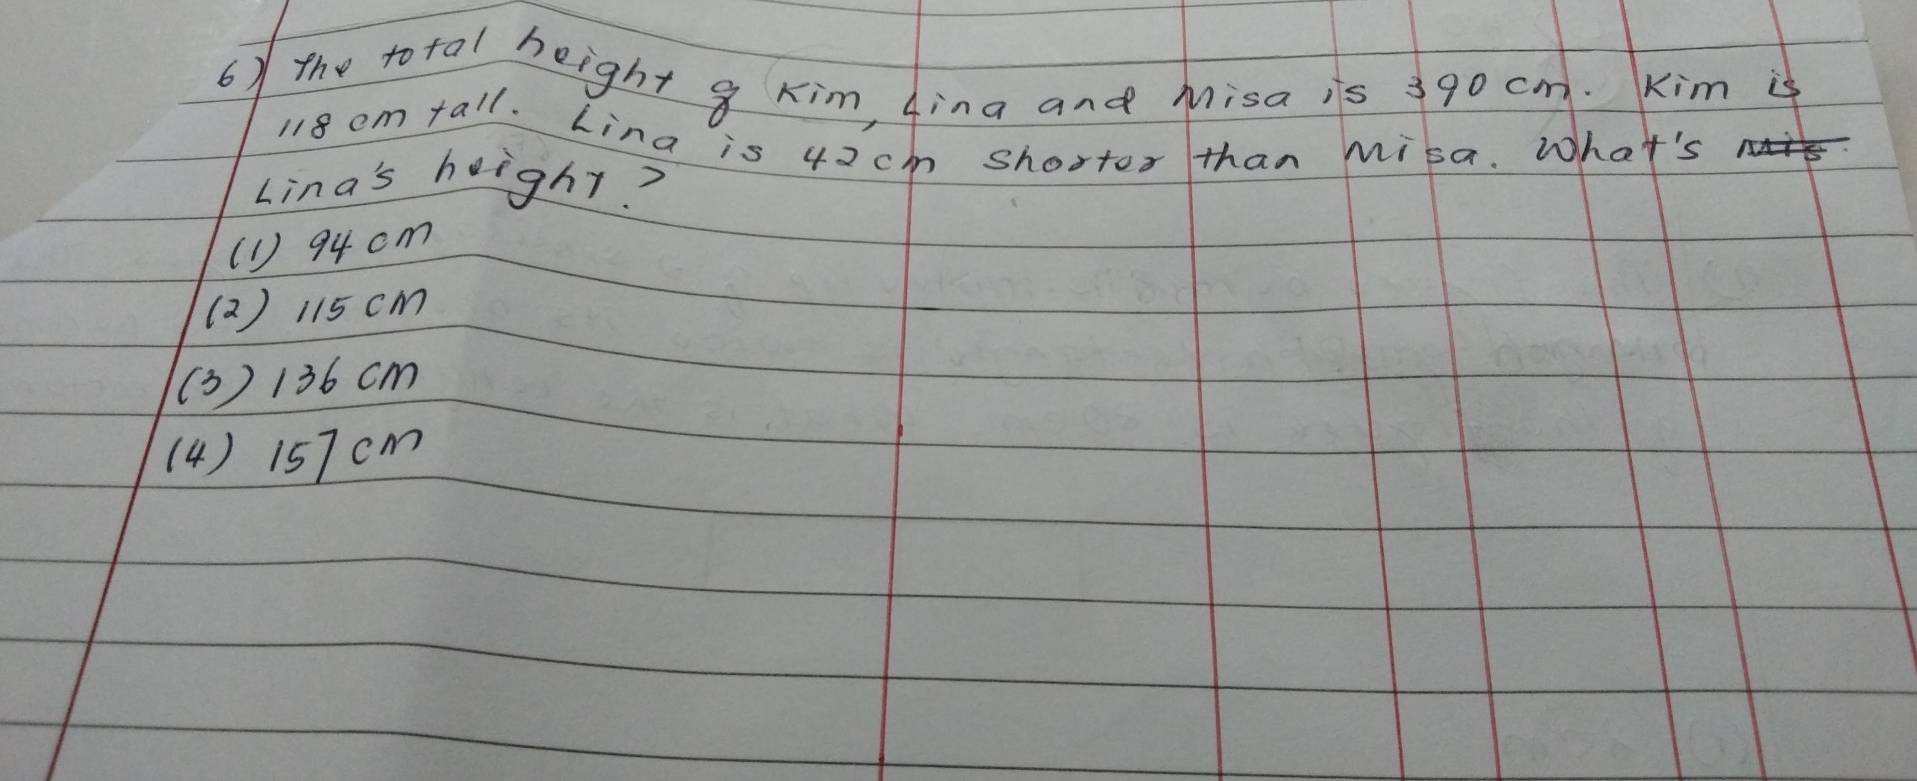 6) The total height of Kim, Lina and Misa is 390 cm. Kim is
118 cm tall. Lina is 42 cm shorter than Misa. What's
Lina's height?
(1) 94 cm
(2) 115 cm
(3) 136 cm
(4) 157 cm